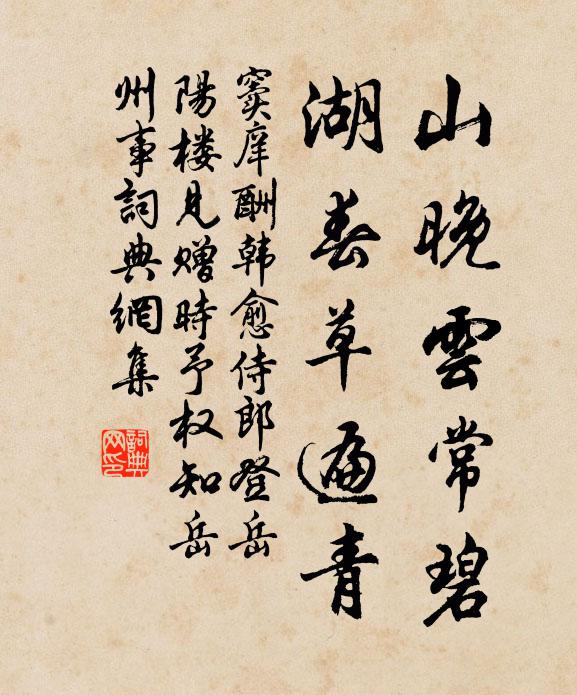 山晚雲常碧
湖春草遍青
窦庠酬韩愈侍郎登岳
陽楼见赠時予权知岳
州事詞典網集
詞典
网印